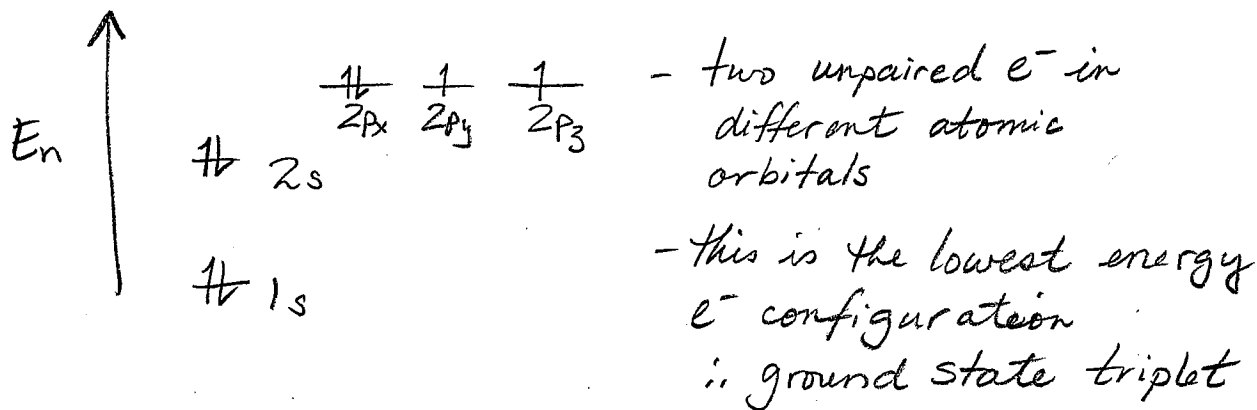 2px 2py 2pz
En
2s
1s
- two unpaired e⁻ in
different atomic
orbitals
- this is the lowest energy
e⁻ configuration
∴ ground state triplet